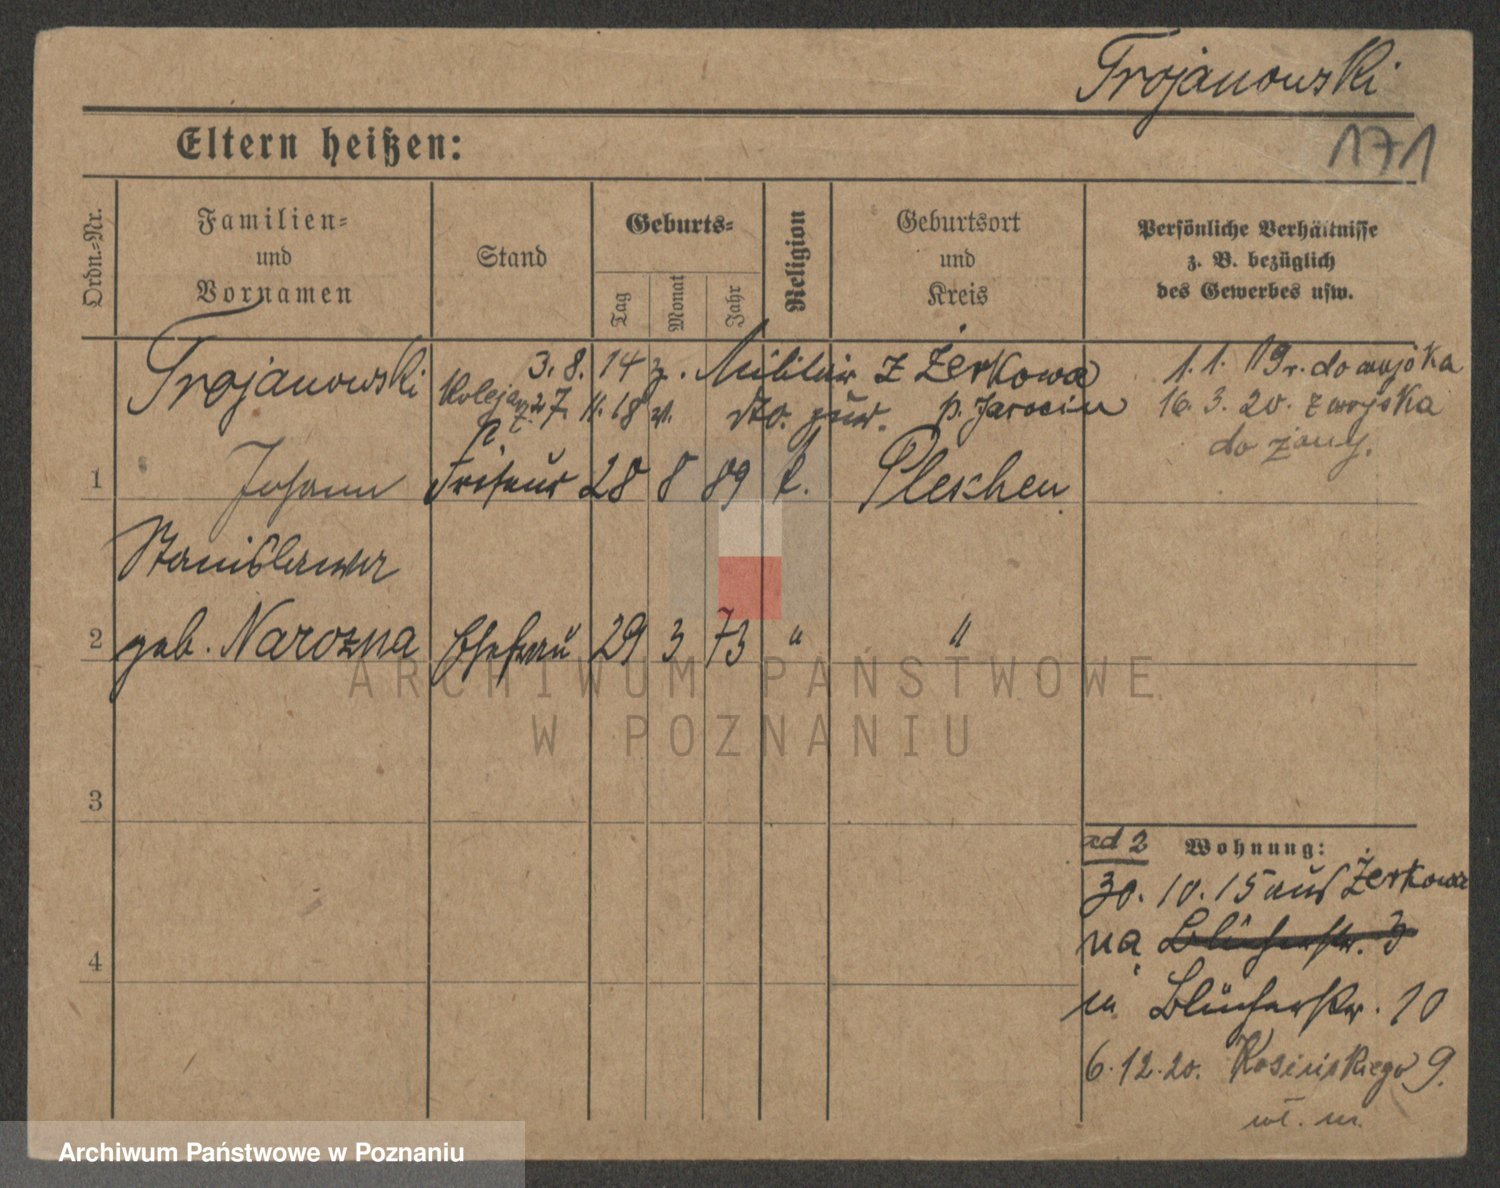 Trojanowski
171
Eltern heißen:
Ordn.-Nr.
Familien- und Vornamen
Stand
Geburts-
Tag
Monat
Jahr
Religion
Geburtsort und Kreis
Persönliche Verhältnisse
z. B. bezüglich
des Gewerbes usw.
Trojanowski 3. 8. 14 z. Militär z Żerkowa 1. 1. 19 r. do wojska
27. 11. 18 v. dto. zur. p. Jarocin 16. 3. 20. z wojska
do żony.
1 Johann Friseur 28 8 89 k. Pleschen
Stanislawa
2 geb. Narozna Ehefrau 29 3 73 " "
3
ad 2 Wohnung:
30. 10. 15 aus Żerkowa
na Blücherstr. 3
in Blücherstr. 10
4
6. 12. 20. Kosinskiego 9.
wł. m.
ARCHIWUM PAŃSTWOWE
W POZNANIU
Archiwum Państwowe w Poznaniu